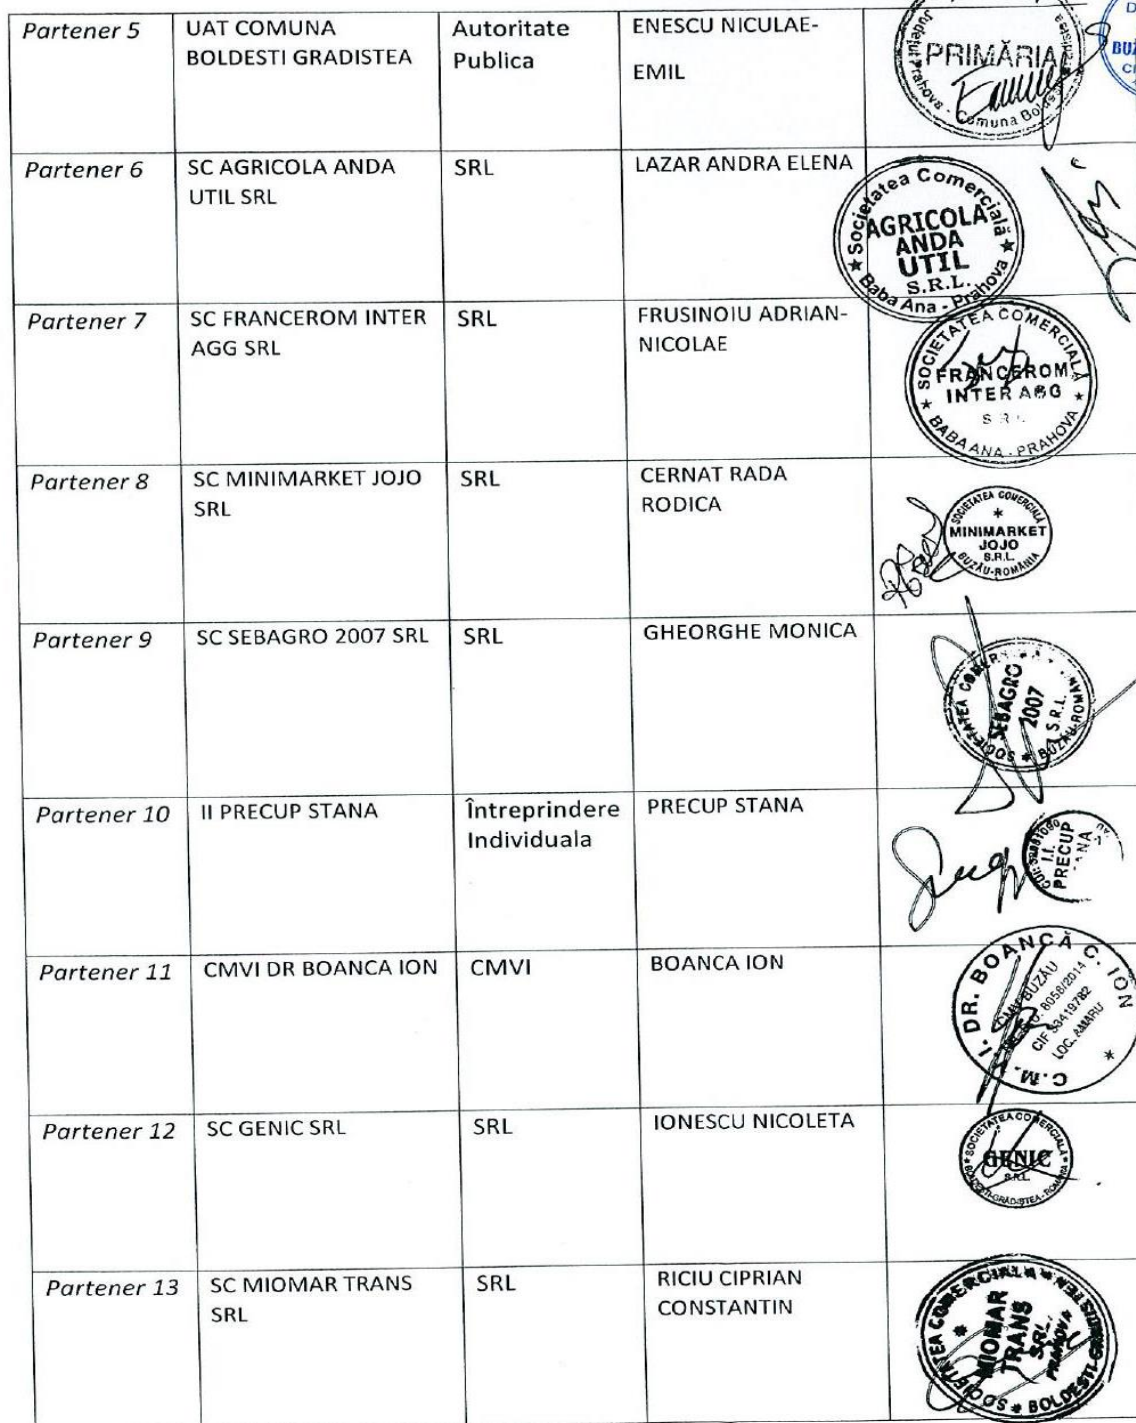 Partener 5
UAT COMUNA
BOLDESTI GRADISTEA
Autoritate
Publica
ENESCU NICULAE-
EMIL
Județul Prahova - Comuna
PRIMĂRIA
Partener 6
SC AGRICOLA ANDA
UTIL SRL
SRL
LAZAR ANDRA ELENA
Societatea Comercială
AGRICOLA
ANDA
UTIL
S.R.L.
Baba Ana - Prahova
Partener 7
SC FRANCEROM INTER
AGG SRL
SRL
FRUSINOIU ADRIAN-
NICOLAE
SOCIETATEA COMERCIALĂ
FRANCEROM
INTER
BABA ANA - PRAHOVA
Partener 8
SC MINIMARKET JOJO
SRL
SRL
CERNAT RADA
RODICA
SOCIETATEA COMERCIALĂ
MINIMARKET
JOJO
S.R.L.
BUZĂU-ROMÂNIA
Partener 9
SC SEBAGRO 2007 SRL
SRL
GHEORGHE MONICA
SOCIETATEA
SEBAGRO
2007
S.R.L.
Partener 10
II PRECUP STANA
Întreprindere
Individuala
PRECUP STANA
I.I.
PRECUP
Partener 11
CMVI DR BOANCA ION
CMVI
BOANCA ION
C.M. I. DR. BOANCĂ C. ION
BUZĂU
8058/2014
CIF 33419782
LOC. AMARU
Partener 12
SC GENIC SRL
SRL
IONESCU NICOLETA
SOCIETATEA COMERCIALĂ
GENIC
S.R.L.
BOLDEȘTI-GRĂDIȘTEA - ROMÂNIA
Partener 13
SC MIOMAR TRANS
SRL
SRL
RICIU CIPRIAN
CONSTANTIN
SOCIETATEA COMERCIALA
MIOMAR
TRANS
SRL
PRAHOVA